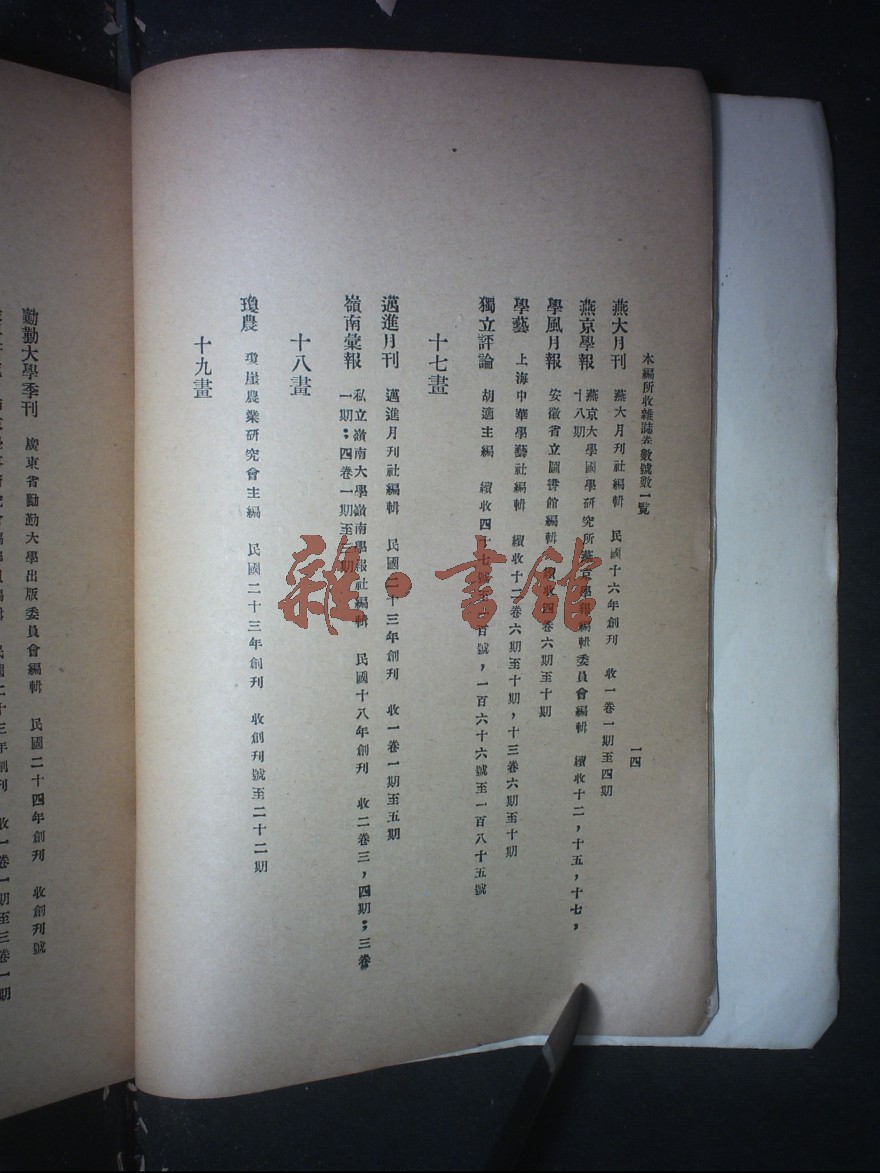 本編所收雜誌卷數號數一覽
一四
燕大月刊 燕大月刊社編輯 民國十六年創刊 收一卷一期至四期
燕京學報 燕京大學國學研究所燕京學報編輯委員會編輯 續收十二，十五，十七，
十八期
學風月報 安徽省立圖書館編輯 續收四卷六期至十期
學藝 上海中華學藝社編輯 續收十二卷六期至十期，十三卷六期至十期
獨立評論 胡適主編 續收四十七號至一百號，一百六十六號至一百八十五號
十七畫
邁進月刊 邁進月刊社編輯 民國二十三年創刊 收一卷一期至五期
嶺南彙報 私立嶺南大學嶺南學報社編輯 民國十八年創刊 收二卷三，四期；三卷
一期；四卷一期至三期
十八畫
瓊農 瓊崖農業研究會主編 民國二十三年創刊 收創刊號至二十二期
十九畫
勷勤大學季刊 廣東省勷勤大學出版委員會編輯 民國二十四年創刊 收創刊號
民國二十三年創刊 收一卷一期至三卷一期
雜·書館